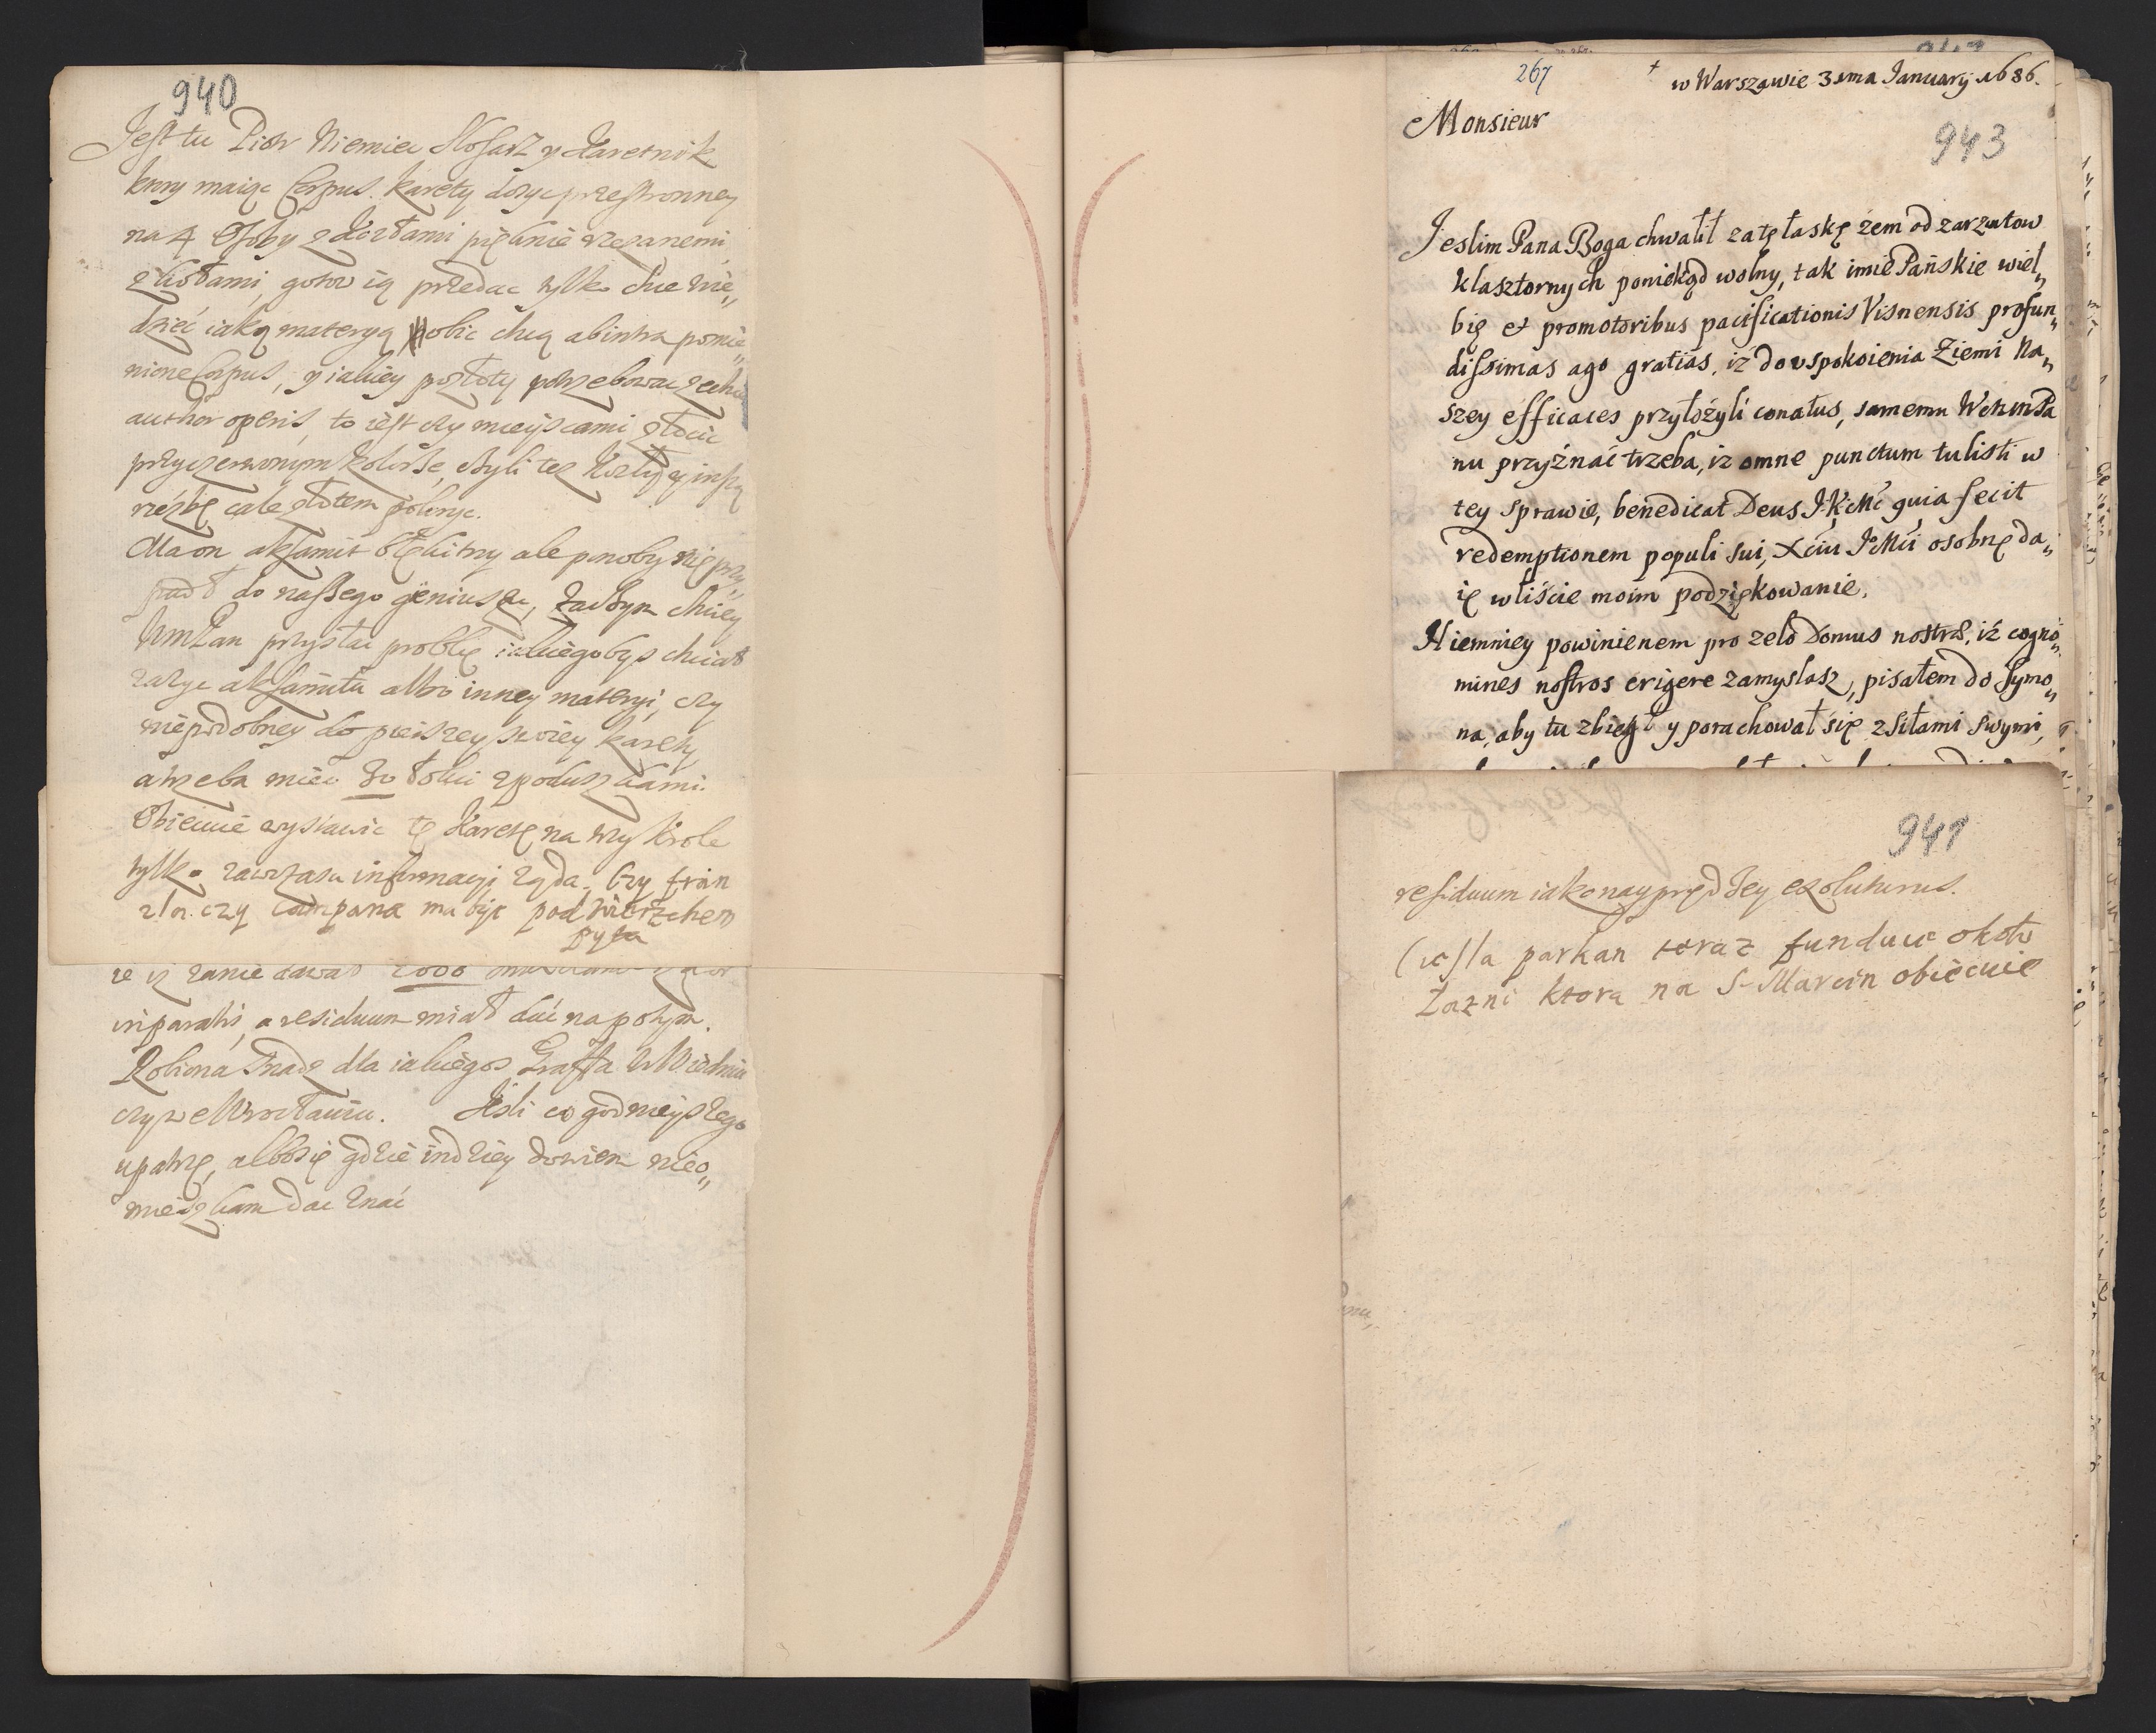 940
Jest tu Piotr Niemiec Slosarz y Karetnik
ktory maiąc Corpus Karety dosyc przestronney
na 4 Osoby z Kozłami pięknie rzezanemi
z kołami, gotow ią przedac tylko chce wie„
dzieć iaką materyą obic chcą ab intra pomie„
nione Corpus, y iakiey pozłoty potrzebowac
author operis, to iest czy mieyscami złocic
przy czerwonym kolorze, czyli tez Kozły y inszą
rzeźbę całe złotem pokryc.
Ma on aksamit błękitny ale
padł do naszego geniusza, zaczym chciey
WmPan przysłac problę iakiegobys chciał
zazyc aksamitu albo inney materyi, czy
niepodobney do swoiey karety
a trzeba miec 30 łokci z poduszkami.
Obiecuie wystawic tę Karetę na trzy Krole
tylko zawczasu informacyi ząda. Czy fran
zla. czy campana ma byc pod wierzchem
pyta
iz zanie dawał 2000
in paratis, a residuum miał dac na potym.
Robiona snadz dla iakiegos Graffa w Wiedniu
czy we Wrocławiu. Jesli co godnieyszego
upatrzę, albo się gdzie indziey dowiem nieo„
mieszkam dac znać
267
w Warszawie 31ma January 1686.
Monsieur
943
Jeslim Pana Boga chwalił za tę łaskę żem od zarzutow
klasztornych poniekąd wolny, tak imie Pańskie wiel„
bię et promotoribus pacificationis Visnensis profun„
dissimas ago gratias, iż do uspokoienia Ziemi Na„
szey efficaces przyłożyli conatus, samemu WchmPa
nu przyźnać trzeba, iz omne punctum tulisti w
tey sprawie, benedicat Deus J.K.Mć quia fecit
redemptionem populi sui, Xciu JMći osobnę da„
ię w liście moim podziękowanie.
Niemniey powinienem pro zelo Domus nostræ, iż cogno„
mines nostros erigere zamyslasz, pisałem do Symo„
na, aby tu zbiegł y porachował się z siłami swymi,
941
residuum iako nayprędzey exoluturus.
parkan teraz funduie około
Łazni ktorą na S. Marcin obiecuie